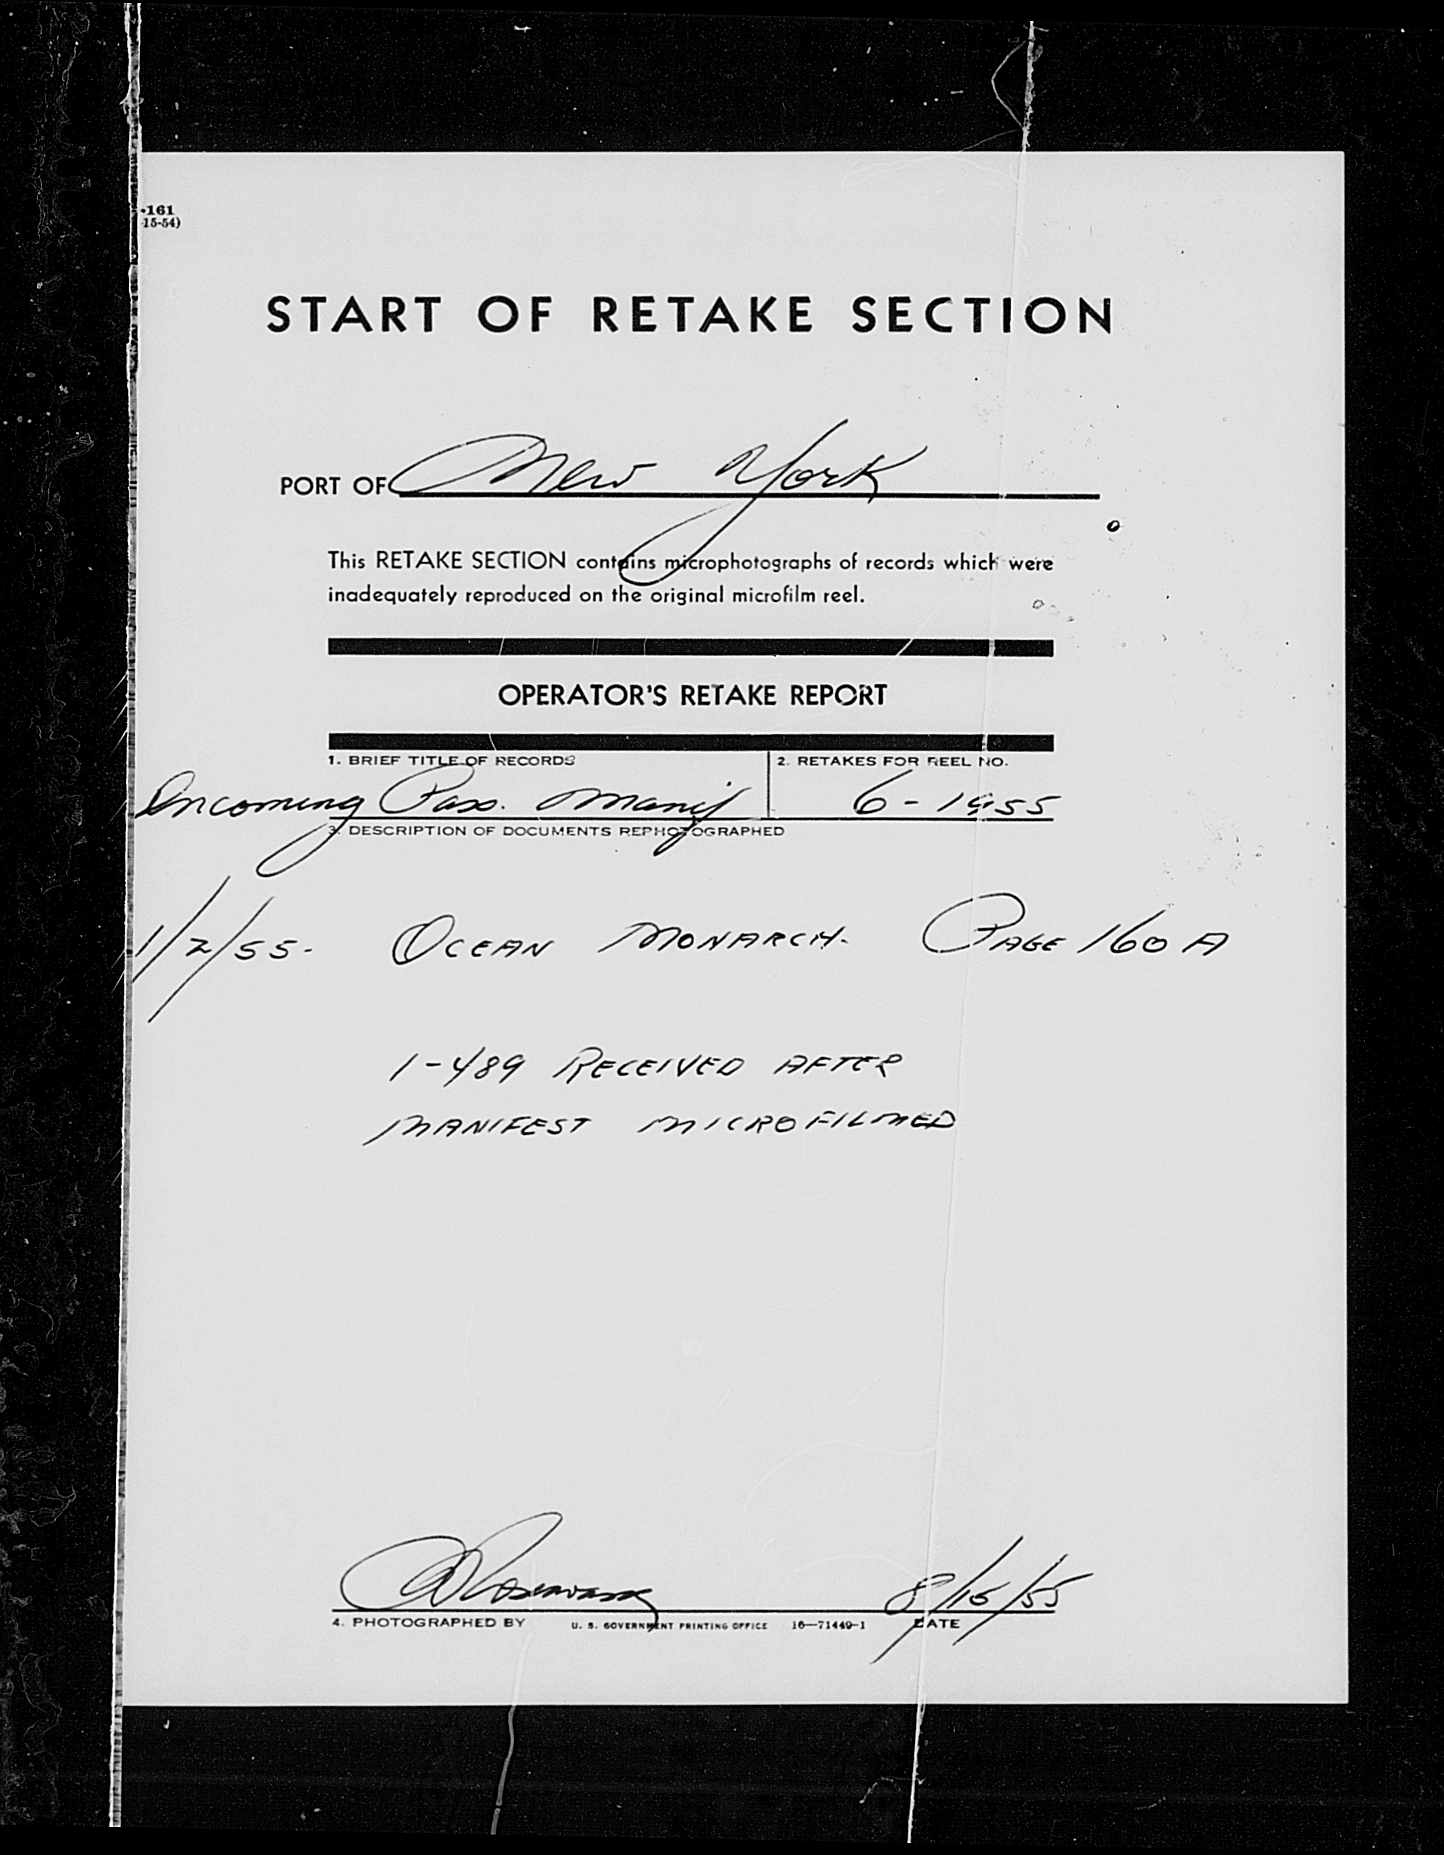 -161
15-54)
START OF RETAKE SECTION
PORT OF New York
This RETAKE SECTION contains microphotographs of records which were
inadequately reproduced on the original microfilm reel.
OPERATOR'S RETAKE REPORT
1. BRIEF TITLE OF RECORDS 2. RETAKES FOR REEL NO.
Incoming Pass. Manif 6-1955
3. DESCRIPTION OF DOCUMENTS REPHOTOGRAPHED
1/2/55- OCEAN MONARCH- PAGE 160 A
1-489 RECEIVED AFTER
MANIFEST MICROFILMED
8/15/55
4. PHOTOGRAPHED BY U. S. GOVERNMENT PRINTING OFFICE 16—71449-1 DATE